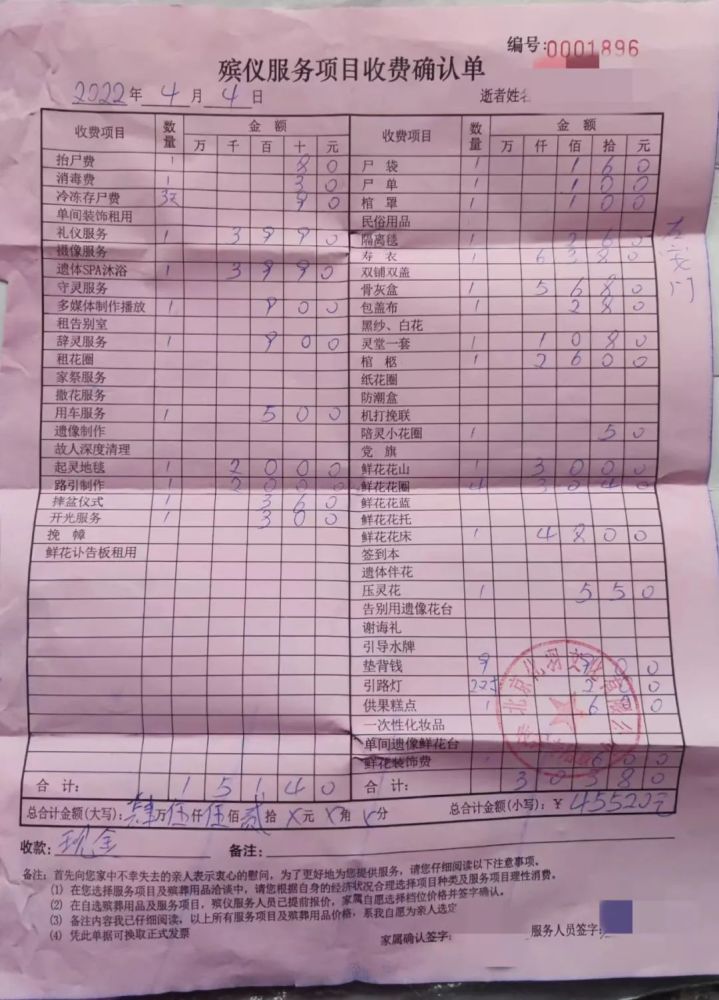 编号:0001896
殡仪服务项目收费确认单
2022年 4 月 4 日 逝者姓名
收费项目 数量 金额 万 千 百 十 元 收费项目 数量 金额 万 仟 佰 拾 元
抬尸费 1 80 尸袋 1 160
消毒费 1 30 尸单 1 100
冷冻存尸费 3天 90 棺罩 1 100
单间装饰租用 民俗用品
礼仪服务 1 3990 隔离毯 1 260
摄像服务 寿衣 1 6380
遗体SPA沐浴 1 3990 双铺双盖
守灵服务 骨灰盒 1 5680
多媒体制作播放 1 900 包盖布 1 280
租告别室 黑纱、白花
辞灵服务 1 900 灵堂一套 1 1080
租花圈 棺柩 1 2600
家祭服务 纸花圈
撒花服务 防潮盒
用车服务 1 500 机打挽联
遗像制作 陪灵小花圈 1 50
故人深度清理 党旗
起灵地毯 1 2000 鲜花花山 1 3000
路引制作 1 2000 鲜花花圈 4 3040
摔盆仪式 1 360 鲜花花篮
开光服务 1 300 鲜花花托
挽幛 鲜花花床 1 4800
鲜花讣告板租用 签到本
遗体伴花
压灵花 1 550
告别用遗像花台
谢诲礼
引导水牌
垫背钱 9 900
引路灯 200
供果糕点 1 600
一次性化妆品
单间遗像鲜花台
鲜花装饰费 600
合计: 15140 合计: 30380
总合计金额(大写): 肆万伍仟伍佰贰拾X元X角X分 总合计金额(小写): ¥ 45520元
收款: 现金 备注:
备注: 首先向您家中不幸失去的亲人表示衷心的慰问，为了更好地为您提供服务，请您仔细阅读以下注意事项。
(1) 在您选择服务项目及殡葬用品洽谈中，请您根据自身的经济状况合理选择项目种类及服务项目理性消费。
(2) 在自选殡葬用品及服务项目，殡仪服务人员已提前报价，家属自愿选择档位价格并签字确认。
(3) 备注内容我已仔细阅读，以上所有服务项目及殡葬用品价格，系我自愿为亲人选定
(4) 凭此单据可换取正式发票
家属确认签字: 服务人员签字: